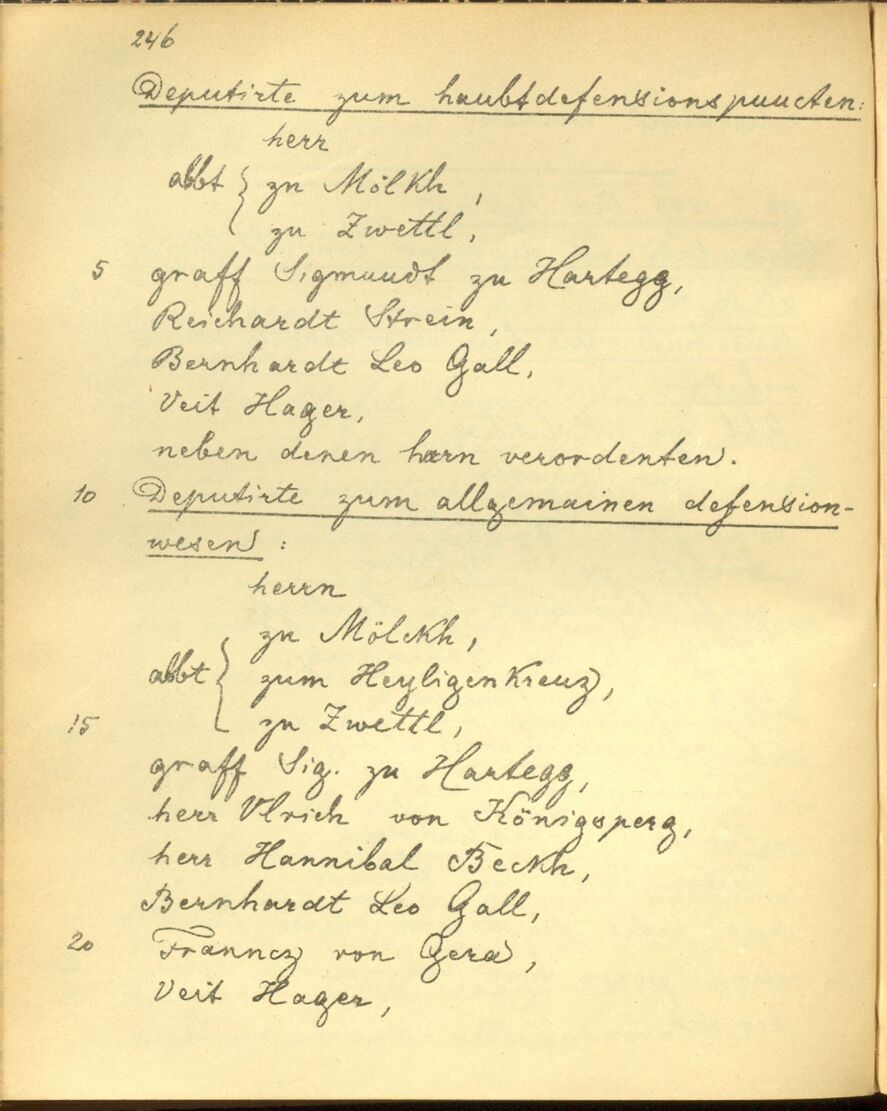 246
Deputirte zum haubtdefensionspuncten:
herr
abbt { zu Mölkh,
zu Zwettl,
5 graff Sigmundt zu Hartegg,
Reichardt Strein,
Bernhardt Leo Gall,
Veit Hager,
neben denen herrn verordenten.
10 Deputirte zum allgemainen defension-
wesen:
herrn
zu Mölckh,
abbt { zum Heyligenkreuz,
15 zu Zwettl,
graff Sig. zu Hartegg,
herr Vlrich von Königsperg,
herr Hannibal Beckh,
Bernhardt Leo Gall,
20 Franncz von Gera,
Veit Hager,